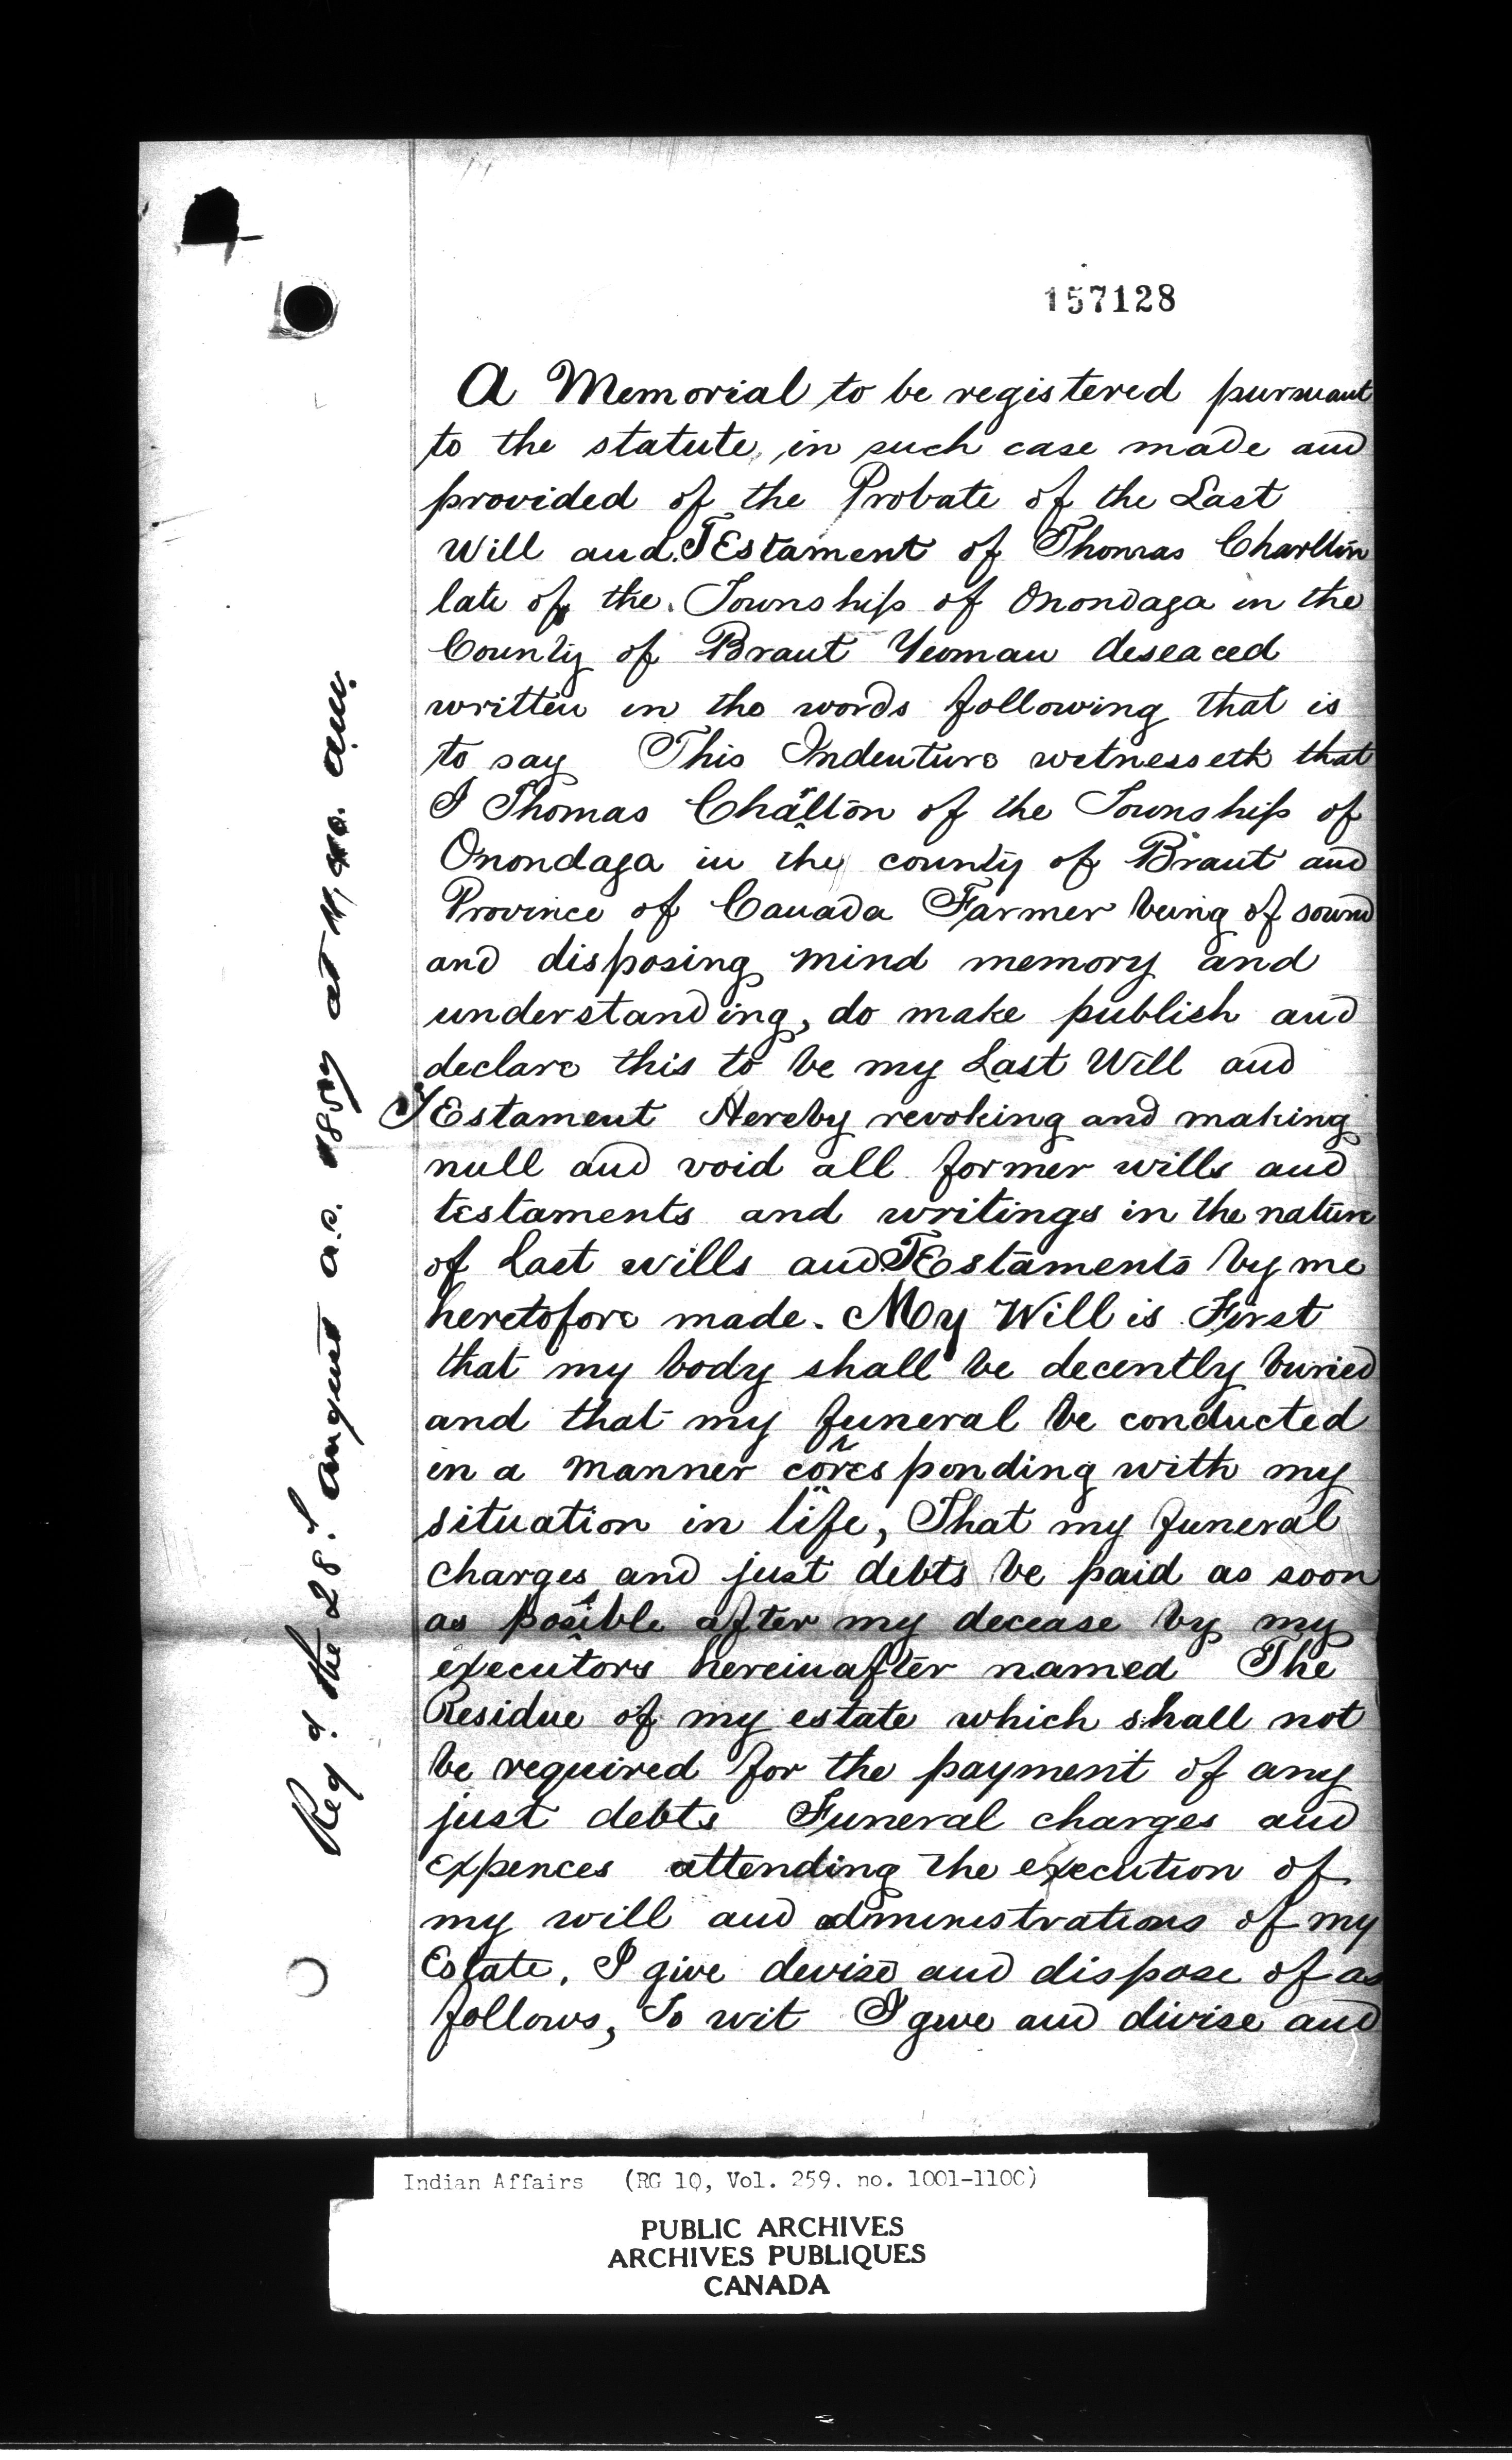 157128
A Memorial to be registered pursuant
to the statute in such case made and
provided of the Probate of the Last
Will and TEstament of Thomas Charlton
late of the Township of Onondaga in the
County of Brant Yeoman deseaced
written in the words following that is
to say This Indenture witnesseth that
I Thomas Charlton of the Township of
Onondaga in the county of Brant and
Province of Canada Farmer being of sound
and disposing mind memory and
understanding, do make publish and
declare this to be my Last Will and
TEstament Hereby revoking and making
null and void all former wills and
testaments and writings in the nature
of Last wills and TEstaments by me
heretofore made. My Will is First
that my body shall be decently buried
and that my funeral be conducted
in a manner corresponding with my
situation in life, That my funeral
charges and just debts be paid as soon
as possible after my decease by my
executors hereinafter named The
Residue of my estate which shall not
be required for the payment of any
just debts Funeral charges and
expences attending the execution of
my will and administrations of my
Estate. I give devise and dispose of as
follows, To wit I give and divise and
Regd. the 28th August A.D. at
Indian Affairs (RG 10, Vol. 259. no. 1001-1100)
PUBLIC ARCHIVES
ARCHIVES PUBLIQUES
CANADA